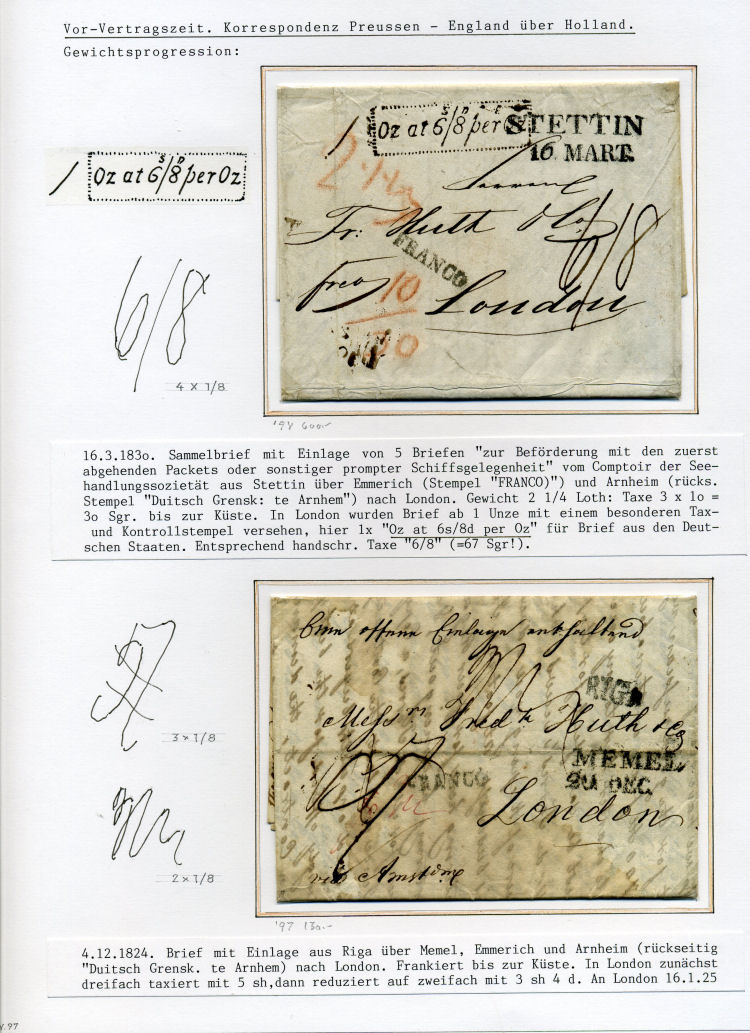 Vor-Vertragszeit. Korrespondenz Preussen - England über Holland.
Gewichtsprogression:
1 Oz at 6S/8D per Oz
STETTIN
16. MART.
Fr: Huth & Co.
6/8
FRANCO
franco
10
30
London
1 Oz at 6S/8D per Oz
6/8
4 x 1/8
'98 600.-
16.3.183o. Sammelbrief mit Einlage von 5 Briefen "zur Beförderung mit den zuerst
abgehenden Packets oder sonstiger prompter Schiffsgelegenheit" vom Comptoir der See-
handlungssozietät aus Stettin über Emmerich (Stempel "FRANCO)") und Arnheim (rücks.
Stempel "Duitsch Grensk: te Arnhem") nach London. Gewicht 2 1/4 Loth: Taxe 3 x 1o =
3o Sgr. bis zur Küste. In London wurden Brief ab 1 Unze mit einem besonderen Tax-
und Kontrollstempel versehen, hier 1x "Oz at 6s/8d per Oz" für Brief aus den Deut-
schen Staaten. Entsprechend handschr. Taxe "6/8" (=67 Sgr!).
Eine offene Einlage enthaltend
RIGA
Messrs Fredk Huth & Co
MEMEL
20 DEC.
FRANCO
London
via Amstdm
3 x 1/8
2 x 1/8
'97 130.-
4.12.1824. Brief mit Einlage aus Riga über Memel, Emmerich und Arnheim (rückseitig
"Duitsch Grensk. te Arnhem) nach London. Frankiert bis zur Küste. In London zunächst
dreifach taxiert mit 5 sh,dann reduziert auf zweifach mit 3 sh 4 d. An London 16.1.25